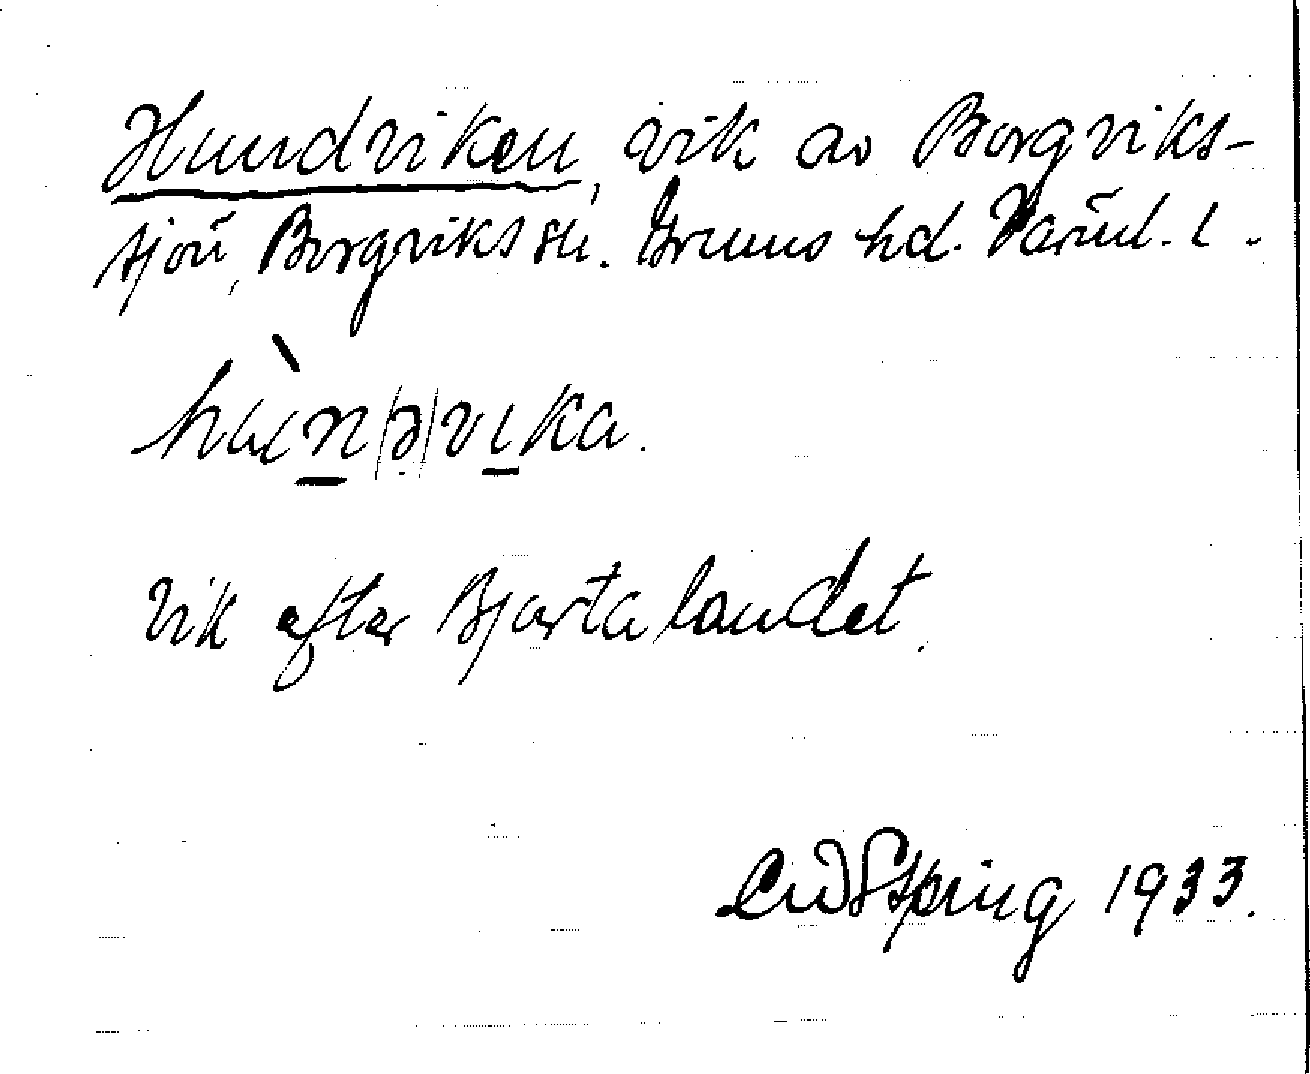 Hundviken, vik av Borgviks-
sjön, Borgviks sn. Grums hd. Värml. l.
hùn(ə)vika.
Vik efter Bjartalandet.
Spring 1933.